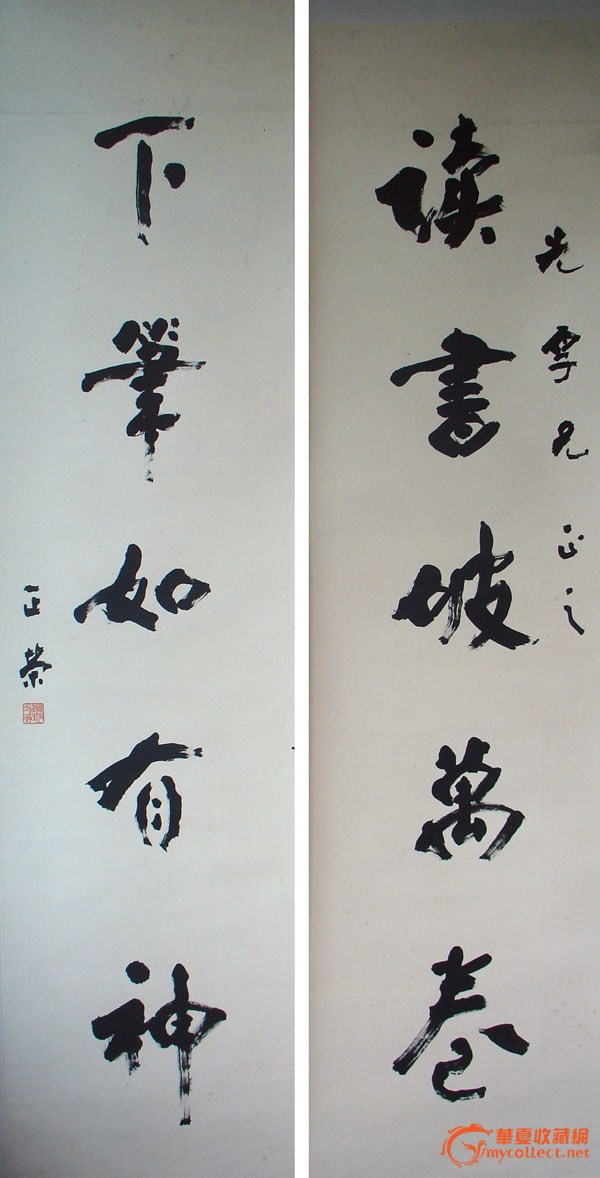 读书破萬卷
先雪兄正之
下筆如有神
正榮
華夏收藏網
mycollect.net